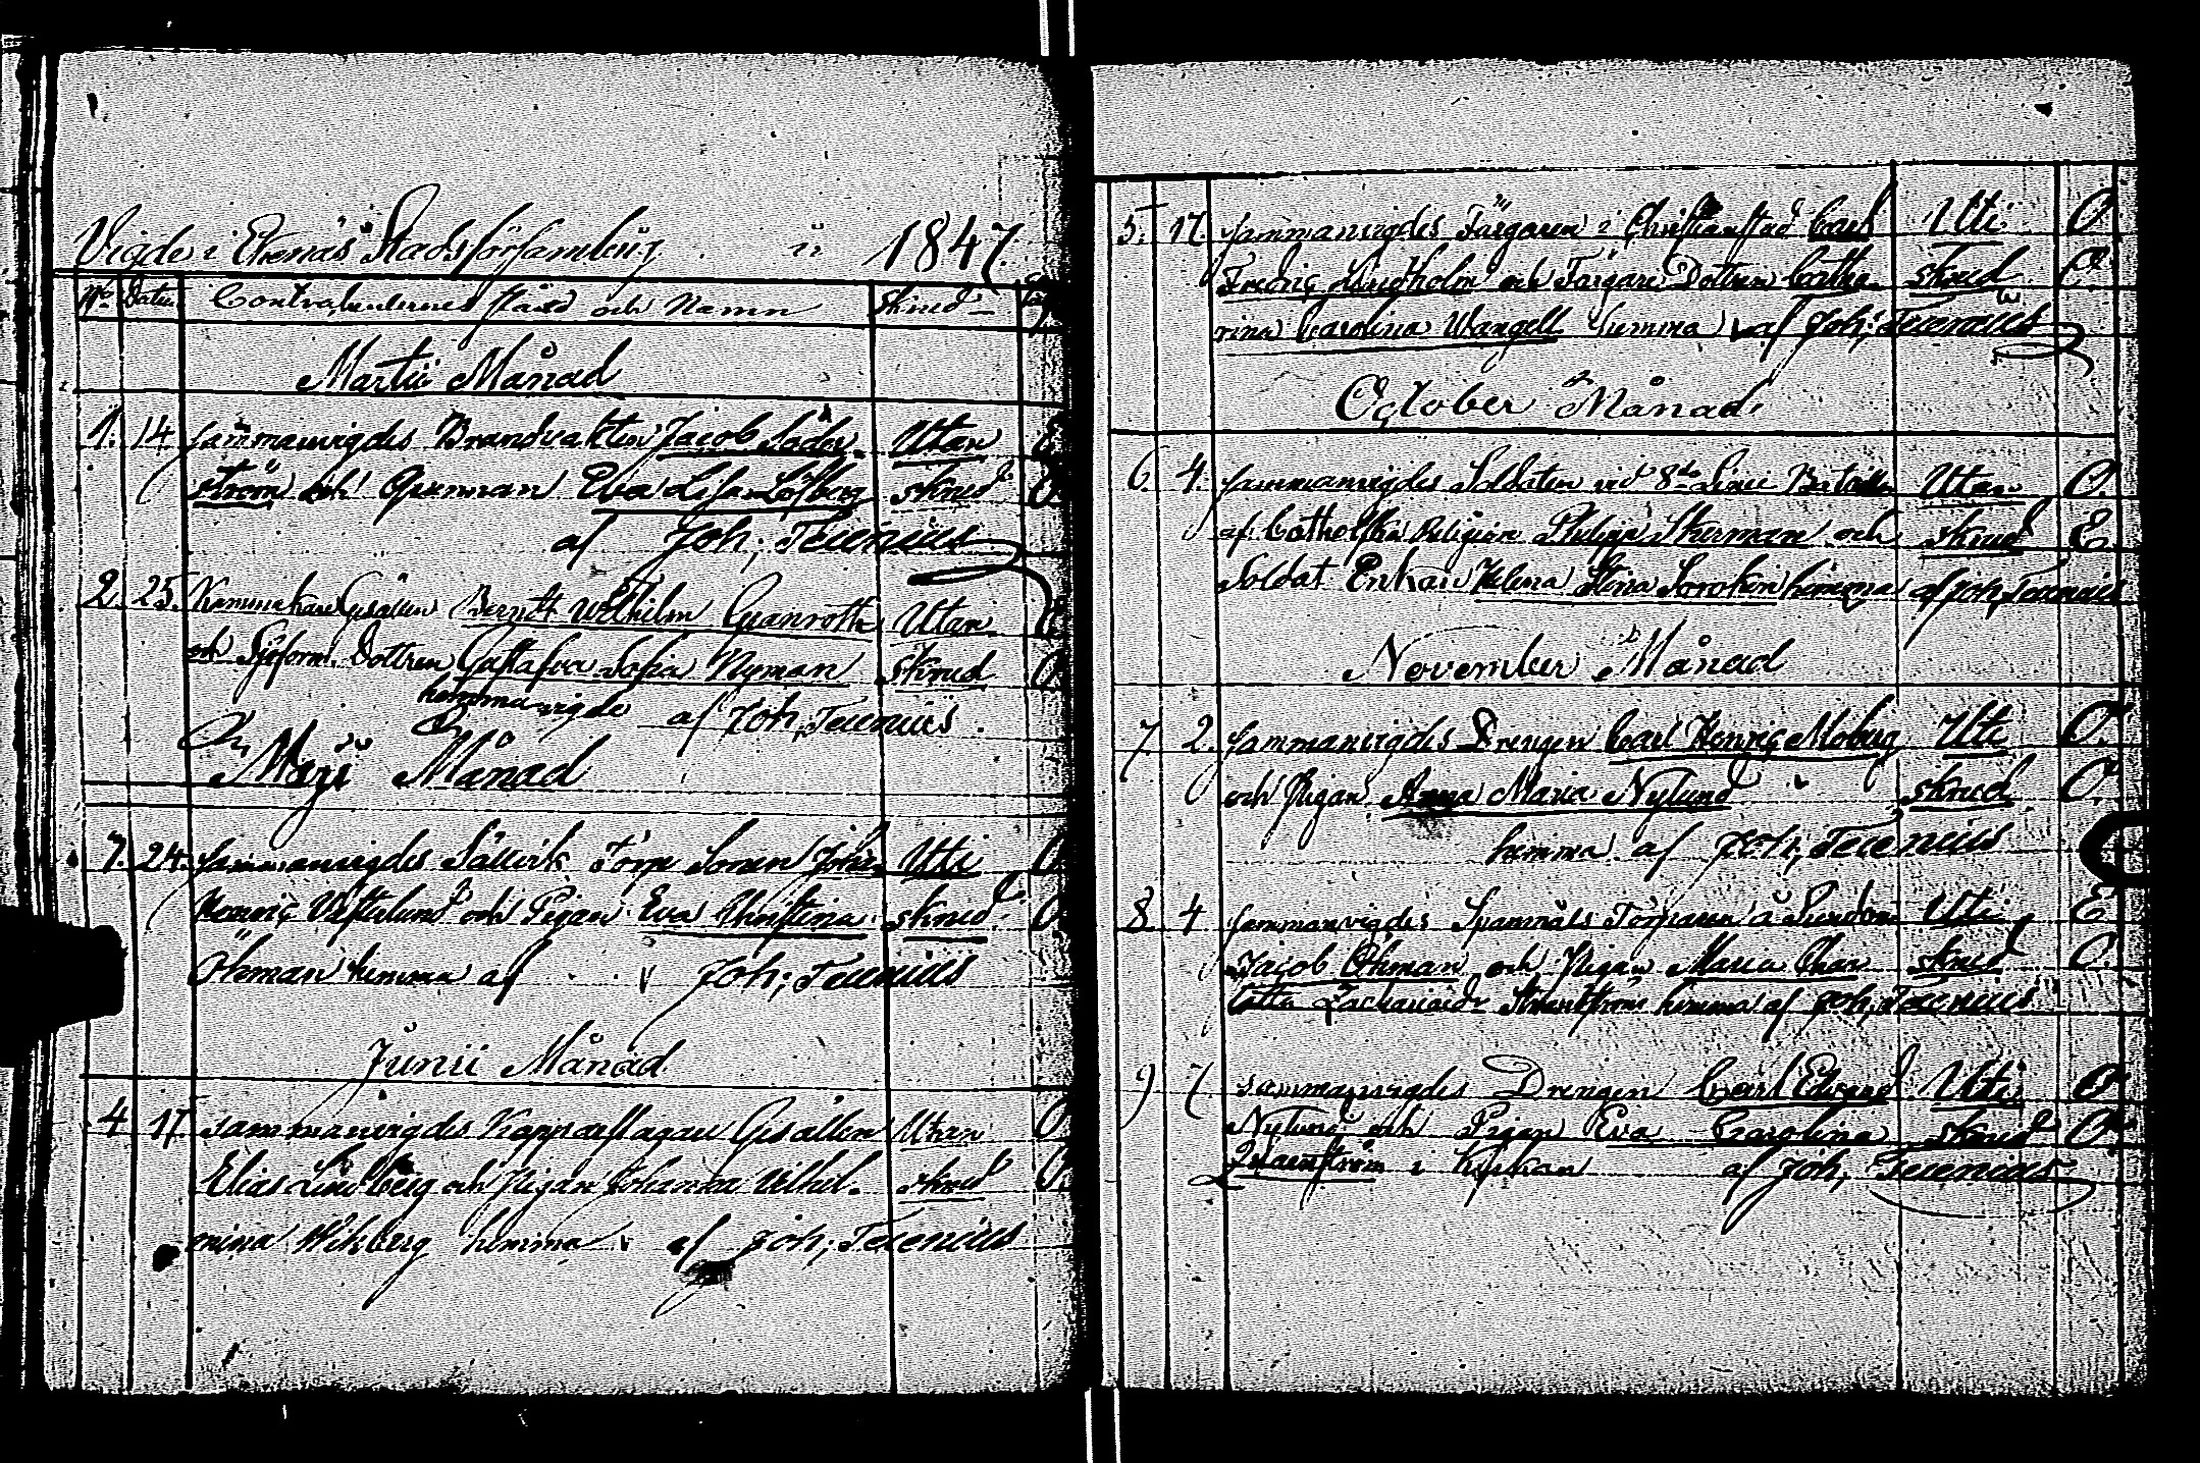 Vigde i Ekenäs Stadsförsamling år 1847.
No Datum Contrahenternes stånd och Namn Skrud
Martii Månad
1. 14 Sammanvigdes Brandvakten Jacob Söder- Utan E
ström och Qvinnan Eva Lisa Löfberg skrud O
af Joh; Tecenius
2. 25. Kammakare Gesällen Berndt Wilhelm Granroth Utan
och Sjöform. Dottren Gustafva Sofia Nyman skrud O
hemma vigde af Joh; Tecenius.
Maji Månad
7. 24. Sammanvigdes Torp Sonen Johan Uti O
Henric Vesterlund och Pigan Eva Christina skrud O.
Öhman hemma af Joh; Tecenius
Junii Månad
4 17 Sammanvigdes Kopparslagare Gesällen Utan O
Elias Lindberg och Pigan Johanna Wilhel- skrud O.
mina Wikberg hemma af Joh; Tecenius
5. 17. Sammanvigdes Färgaren i Christianstad Carl Uti O
Fredric Lindholm och Färgare Dottren Catha- skrud O.
rina Carolina Wangell hemma af Joh; Tecenius
October Månad
6. 4. Sammanvigdes Soldaten vid 8de Linie Bataillon Utan O.
af Catholska Religion och skrud E.
Soldat Enkan Helena Stina Sorokin hemma af Joh; Tecenius
November Månad
7. 2. Sammanvigdes Drengen Carl Henric Moberg Uti O.
och Pigan Anna Maria Nylund skrud O.
hemma af Joh; Tecenius
8. 4 Sammanvigdes Spannmåls Torparen å Uti E
Jacob Öhman och Pigan Maria Char- skrud O.
lotta Zachariasdr hemma af Joh; Tecenius
9 7 Sammanvigdes Drengen Carl Edvard Uti O
Nylund och Pigan Eva Carolina skrud O.
i Kyrkan af Joh; Tecenius